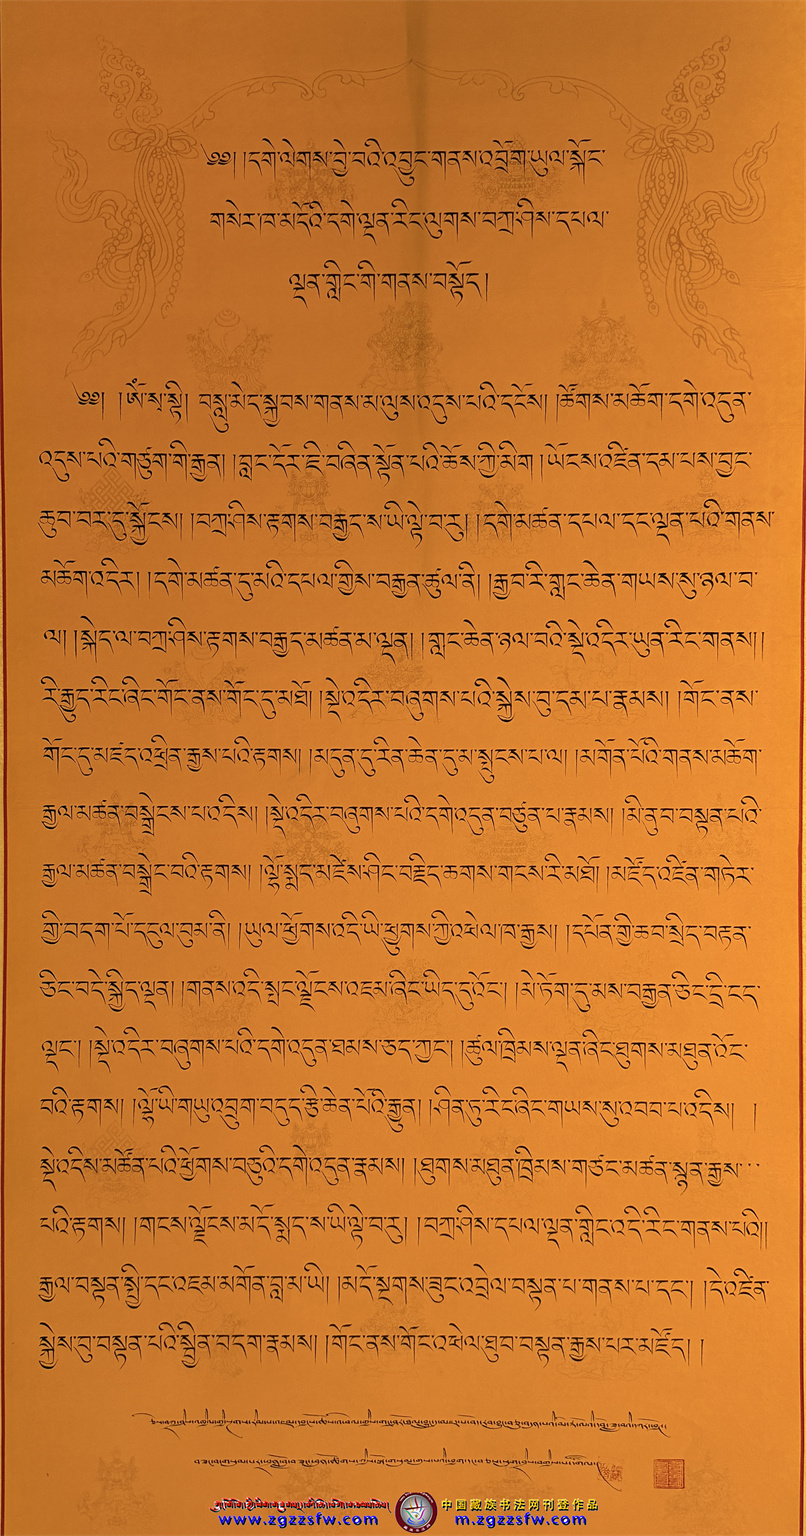 ༄༅། །དགེ་ལེགས་བྱེ་བའི་འབྱུང་གནས་འབྲོག་ཡུལ་སྐོང་
གསེར་ཁ་མདོའི་དགེ་ལྡན་རིང་ལུགས་བཀྲ་ཤིས་དཔལ་
ལྡན་གླིང་གི་གནས་བསྟོད།
༄༅། །ༀ་སྭ་སྟི། བསླུ་མེད་སྐྱབས་གནས་མ་ལུས་འདུས་པའི་དངོས། །ཚོགས་མཆོག་དགེ་འདུན་
འདུས་པའི་གཙུག་གི་རྒྱན། །བླང་དོར་ཇི་བཞིན་སྟོན་པའི་ཆོས་ཀྱི་མིག །ཡོངས་འཛིན་དམ་པས་བྱང་
ཆུབ་བར་དུ་སྐྱོངས། །བཀྲ་ཤིས་རྟགས་བརྒྱད་ས་ཡི་ལྟེ་བ་རུ། །དགེ་མཚན་དཔལ་དང་ལྡན་པའི་གནས་
མཆོག་འདིར། །དགེ་མཚན་དུ་མའི་དཔལ་གྱིས་བརྒྱན་ཚུལ་ནི། །རྒྱབ་རི་གླང་ཆེན་གཡས་སུ་ཉལ་བ་
ལ། །སྐེད་ལ་བཀྲ་ཤིས་རྟགས་བརྒྱད་མཚན་མ་ལྡན། །གླང་ཆེན་ཉལ་བའི་སྡེ་འདིར་ཡུན་རིང་གནས། །
རི་རྒྱུད་རིང་ཞིང་གོང་ནས་གོང་དུ་མཐོ། །སྡེ་འདིར་བཞུགས་པའི་སྐྱེས་བུ་དམ་པ་རྣམས། །གོང་ནས་
གོང་དུ་མཛད་འཕྲིན་རྒྱས་པའི་རྟགས། །མདུན་དུ་རིན་ཆེན་དུ་མ་སྤུངས་པ་ལ། །མགོན་པོའི་གནས་མཆོག་
རྒྱལ་མཚན་བསྒྲེངས་པ་འདིས། །སྡེ་འདིར་བཞུགས་པའི་དགེ་འདུན་བཙུན་པ་རྣམས། །མི་ནུབ་བསྟན་པའི་
རྒྱལ་མཚན་བསྒྲེང་བའི་རྟགས། །ལྷོ་སྨད་མཛེས་ཤིང་བརྗིད་ཆགས་གངས་རི་མཐོ། །མཛོད་འཛིན་གཏེར་
གྱི་བདག་པོ་དངུལ་བུམ་ནི། །ཡུལ་ཕྱོགས་འདི་ཡི་ཕྱུགས་ཀྱི་འཕེལ་ཁ་རྒྱས། །དཔོན་གྱི་ཆབ་སྲིད་བརྟན་
ཅིང་བདེ་སྐྱིད་ལྡན། །གནས་འདི་སྤང་ལྗོངས་འཇམ་ཞིང་ཡིད་དུ་འོང་། །མེ་ཏོག་དུ་མས་བརྒྱན་ཅིང་དྲི་ངད་
ལྡང་། །སྡེ་འདིར་བཞུགས་པའི་དགེ་འདུན་ཐམས་ཅད་ཀྱང་། །ཚུལ་ཁྲིམས་ལྡན་ཞིང་ཐུགས་མཐུན་འོང་
བའི་རྟགས། །ལྷོ་ཡི་གཡུ་འབྲུག་བདུད་རྩི་ཆེན་པོའི་རྒྱུན། །ཤིན་ཏུ་རིང་ཞིང་གཡས་སུ་འབབ་པ་འདིས། །
སྡེ་འདིས་མཚོན་པའི་ཕྱོགས་བཅུའི་དགེ་འདུན་རྣམས། །ཐུགས་མཐུན་ཁྲིམས་གཙང་མཚན་སྙན་རྒྱས་་་
པའི་རྟགས། །གངས་ལྗོངས་མདོ་སྨད་ས་ཡི་ལྟེ་བ་རུ། །བཀྲ་ཤིས་དཔལ་ལྡན་གླིང་འདི་རིང་གནས་པའི། །
རྒྱལ་བསྟན་སྤྱི་དང་འཇམ་མགོན་བླ་མ་ཡི། །མདོ་སྔགས་ཟུང་འབྲེལ་བསྟན་པ་གནས་པ་དང་། །དེ་འཛིན་
སྐྱེས་བུ་བསྟན་པའི་སྦྱིན་བདག་རྣམས། །གོང་ནས་གོང་འཕེལ་ཐུབ་བསྟན་རྒྱས་པར་མཛོད། །
中国藏族书法网刊登作品
www.zgzzsfw.com m.zgzzsfw.com